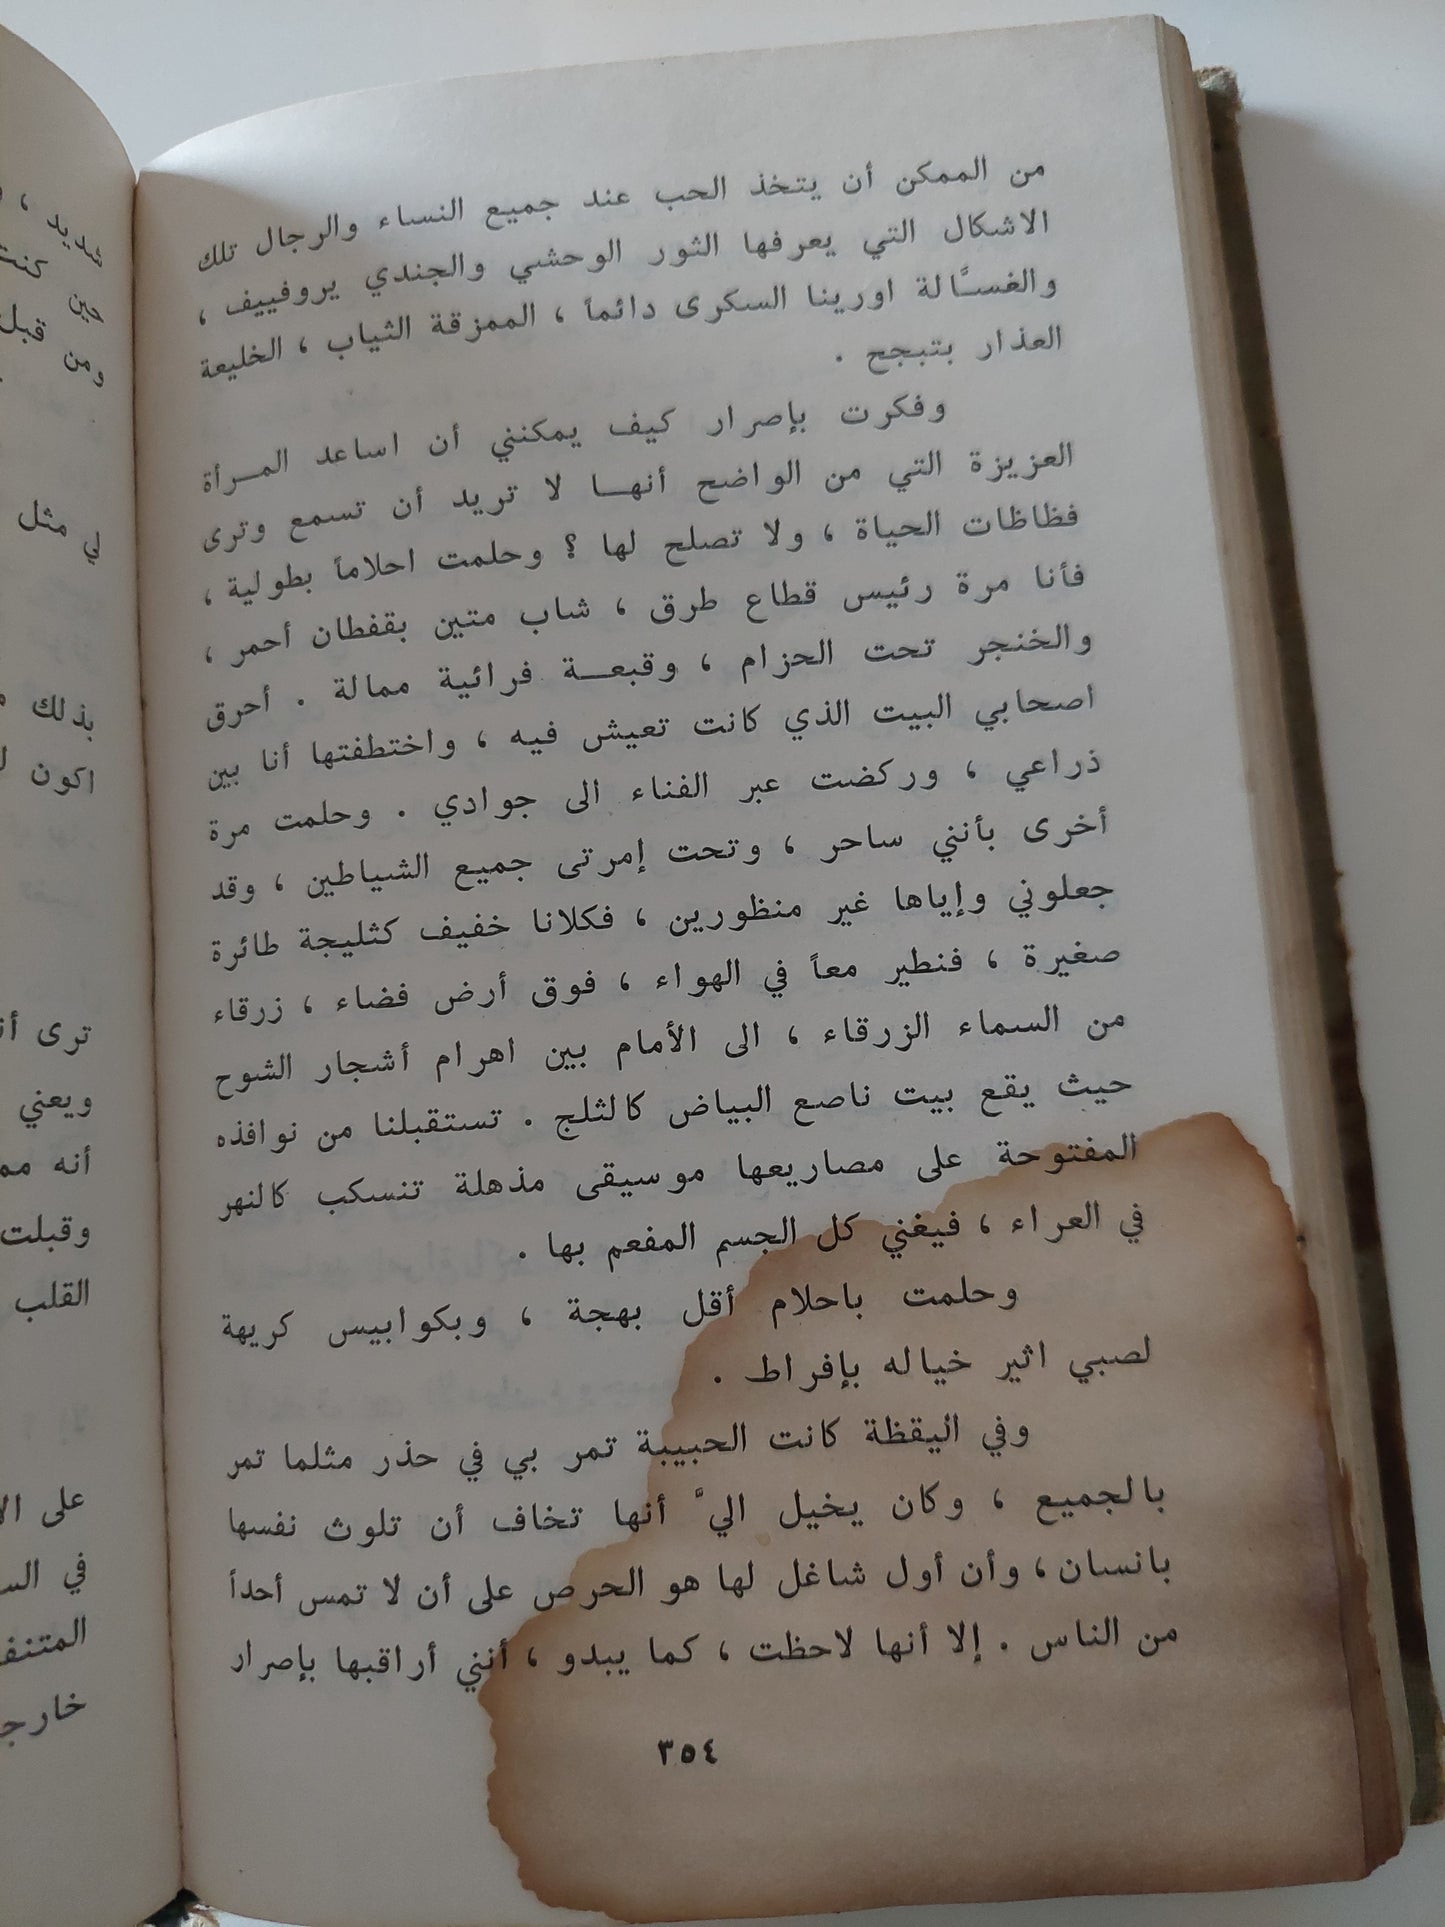 من الممكن أن يتخذ الحب عند جميع النساء والرجال تلك
الاشكال التي يعرفها الثور الوحشي والجندي يروفييف ،
والغسَّالة اورينا السكرى دائماً ، الممزقة الثياب ، الخليعة
العذار بتبجح .
وفكرت بإصرار كيف يمكنني أن اساعد المرأة
العزيزة التي من الواضح أنها لا تريد أن تسمع وترى
فظاظات الحياة ، ولا تصلح لها ؟ وحلمت احلاماً بطولية ،
فأنا مرة رئيس قطاع طرق ، شاب متين بقفطان أحمر ،
والخنجر تحت الحزام ، وقبعة فرائية ممالة . أحرق
اصحابي البيت الذي كانت تعيش فيه ، واختطفتها أنا بين
ذراعي ، وركضت عبر الفناء الى جوادي . وحلمت مرة
أخرى بأنني ساحر ، وتحت إمرتى جميع الشياطين ، وقد
جعلوني وإياها غير منظورين ، فكلانا خفيف كثليجة طائرة
صغيرة ، فنطير معاً في الهواء ، فوق أرض فضاء ، زرقاء
من السماء الزرقاء ، الى الأمام بين اهرام أشجار الشوح
حيث يقع بيت ناصع البياض كالثلج . تستقبلنا من نوافذه
المفتوحة على مصاريعها موسيقى مذهلة تنسكب كالنهر
في العراء ، فيغني كل الجسم المفعم بها .
وحلمت باحلام أقل بهجة ، وبكوابيس كريهة
لصبي اثير خياله بإفراط .
وفي اليقظة كانت الحبيبة تمر بي في حذر مثلما تمر
بالجميع ، وكان يخيل اليَّ أنها تخاف أن تلوث نفسها
بانسان ، وأن أول شاغل لها هو الحرص على أن لا تمس أحداً
من الناس . إلا أنها لاحظت ، كما يبدو ، أنني أراقبها بإصرار
٣٥٤
شديد ،
حين كنت
ومن قبل
لي مثل
بذلك
اكون
ترى
ويعني
أنه
وقبلت
القلب
على
في